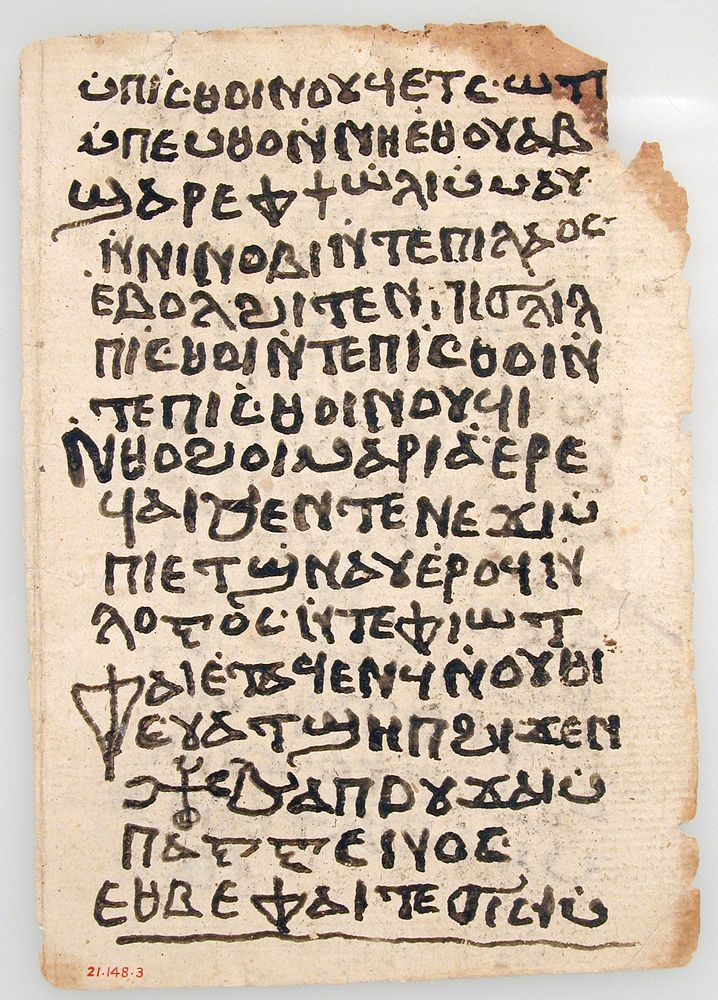 ⲙ̀ⲡⲓⲥⲑⲟⲓⲛⲟⲩϥⲉⲧⲥ·ⲱⲧⲡ
ⲙ̀ⲡⲉⲙⲑⲟⲛ̀ⲛⲏⲉ̀ⲑⲟⲩⲁⲃ
ϣⲁⲣⲉⲫϯⲱ̀ⲗⲓⲙ̀ⲙⲁⲩ
ⲛ̀ⲛⲓⲛⲟⲃⲓⲛ̀ⲧⲉⲡⲓⲗⲁⲟⲥ·
ⲉ̀ⲃⲟⲗϩⲓⲧⲉⲛⲡⲓϭⲗⲓⲗ
ⲡⲓⲥ̀ⲑⲟⲓⲛ̀ⲧⲉⲡⲓⲥ̀ⲑⲟⲓⲛ
ⲧⲉⲡⲓⲥ̀ⲑⲟⲓⲛⲟⲩϥⲓ
ⲛ̀ⲑⲟϩⲟⲓⲙⲁⲣⲓⲁ̀ⲉⲣⲉ
ϥⲁⲓϧⲉⲛⲧⲉⲛⲉϫⲓⲙ̀
ⲡⲓⲉⲧϣⲛⲁⲩⲉ̀ⲣⲟϥⲛ̀
ⲗⲟⲅⲟⲥ·ⲛ̀ⲧⲉⲫⲓⲱⲧ
ⲫⲁⲓⲉⲧⲁϥⲉⲛϥⲛ̀ⲟⲩⲑⲓ
ⲉⲩⲁⲧϣⲏⲡϩⲓϫⲉⲛ
ϧⲁⲡⲟⲩϫⲁⲓⲙ̀
ⲡⲁⲅⲅⲉⲓⲛⲟⲥ
ⲉⲑⲃⲉⲫⲁⲓⲧⲉ
21.148.3